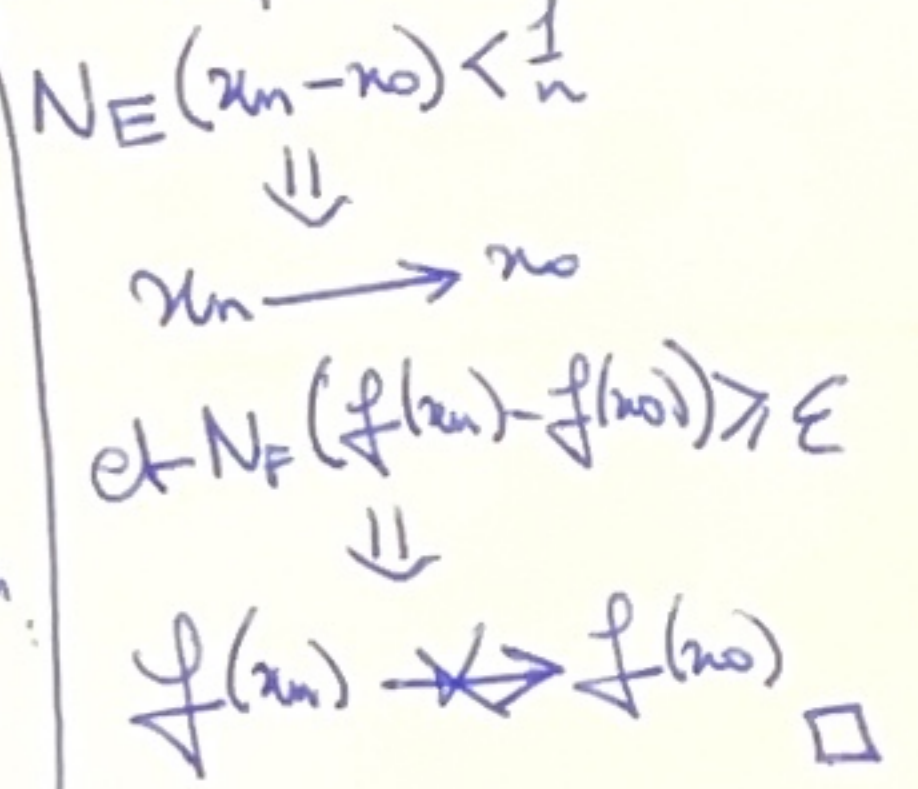 N_E(x_n - x_0) < 1/n
⇓
x_n ⟶ x_0
et N_F(f(x_n) - f(x_0)) ⩾ ε
⇓
f(x_n) ↛ f(x_0)
□